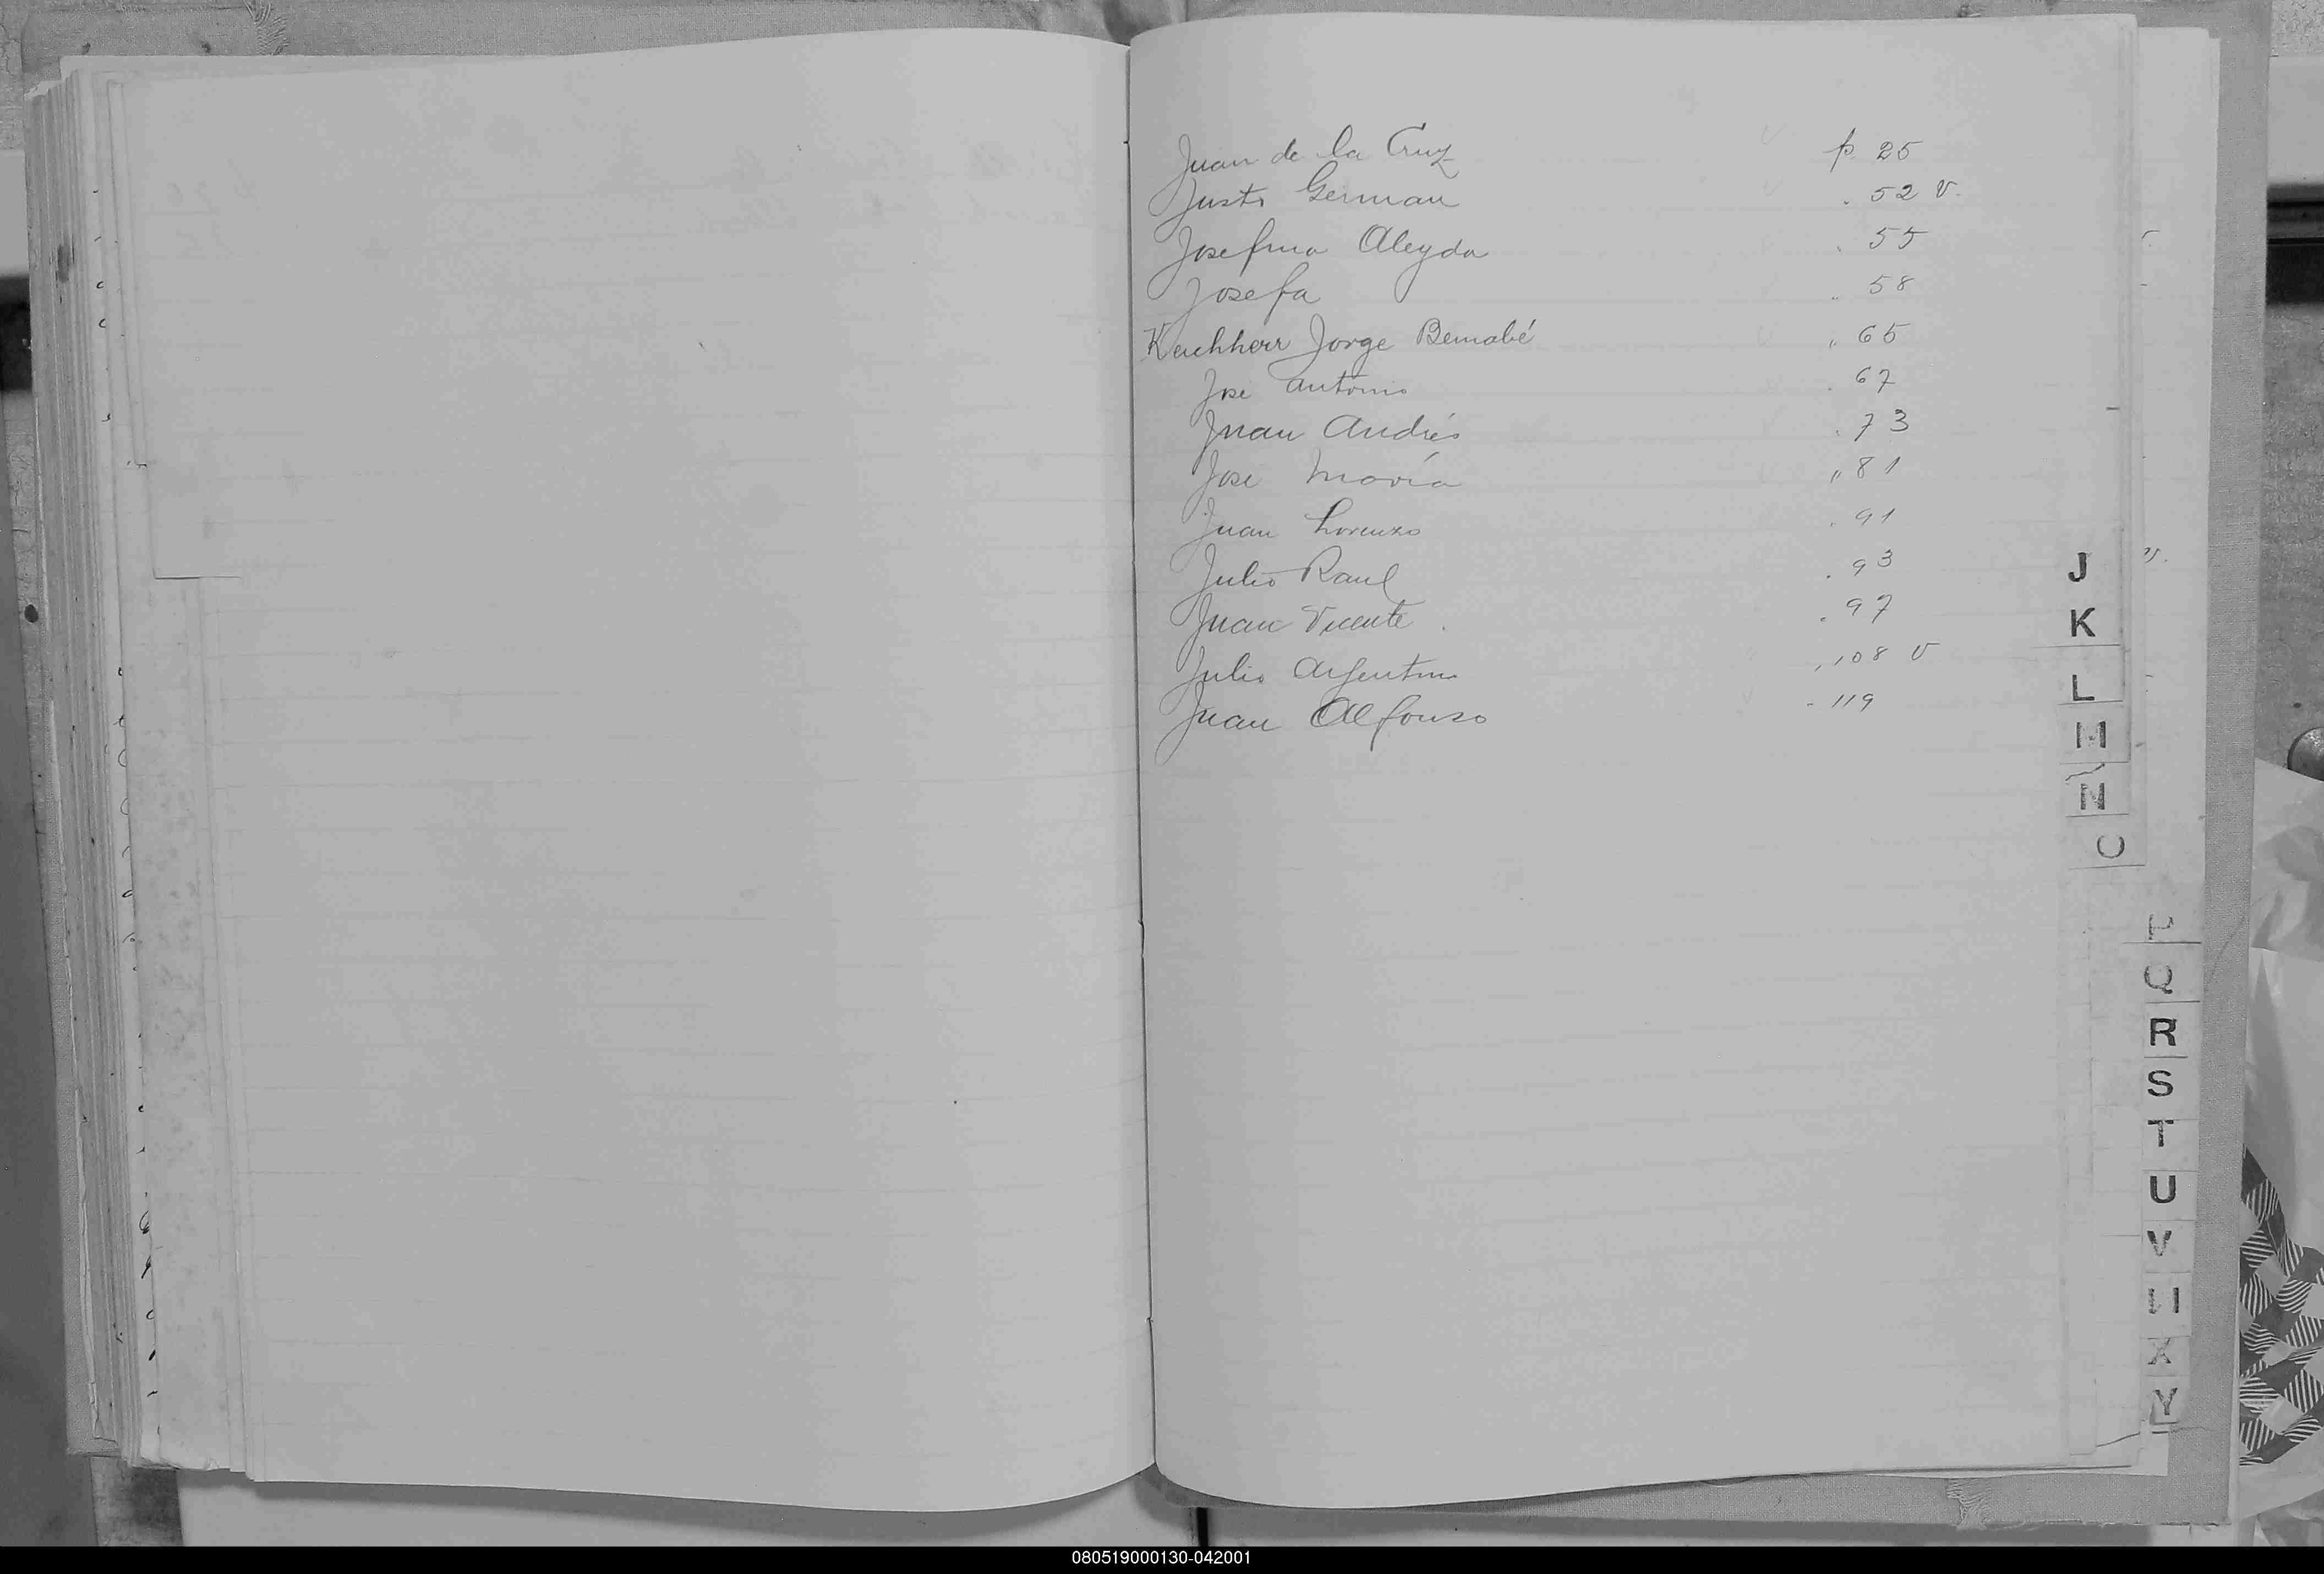 Juan de la Cruz p. 25
Justo German . 52 v.
Josefina Aleyda . 55
Josefa " 58
Kerchherr Jorge Bernabé " 65
Jose Antonio . 67
Juan Andrés . 73
Jose María " 81
Juan Lorenzo . 91
Julio Raul . 93
Juan Vicente . 97
Julio Argentino . 108 v
Juan Alfonso . 119
J
K
L
M
N
O
P
Q
R
S
T
U
V
X
Y
080519000130-042001